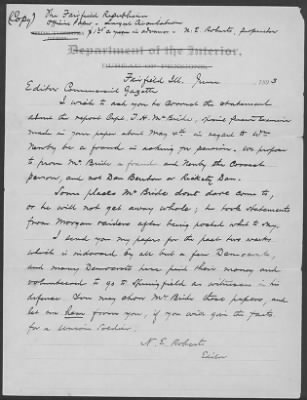 (Copy) The Fairfield Republican
$1.50 a year in advance. - N. E. Roberts, proprietor
Department of the Interior,
BUREAU OF PENSIONS,
Fairfield Ill. June 1893
Editor Commercial Gazette
I wish to ask you to correct the statement
about the report Capt. T. H. McBride, special
made in your paper about May 4th in regard to Wm
Newby be a fraud in asking for pension. We propose
to prove McBride a fraud and Newby the correct
person, and not Dan Benton or Rickety Dan.
Some places McBride don't dare come to,
or he will not get away whole; he took statements
from Morgan raiders after being posted what to say.
I send you my papers for the past two weeks
which is indorsed by all but a few Democrats,
and many Democrats here paid their money and
volunteered to go to Springfield as witnesses in his
defense. You may show McBride these papers, and
let me hear from you, if you will give the facts
for a union soldier.
N. E. Roberts
Editor